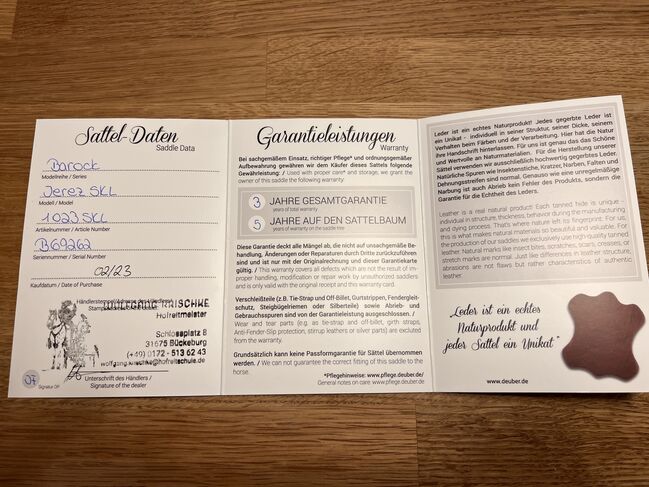 Sattel-Daten
Saddle Data
Barock
Modellreihe / Series
Jerez SKL
Modell / Model
1023 SKL
Artikelnummer / Article Number
B69262
Seriennummer / Serial Number
02/23
Kaufdatum / Date of Purchase
Händlerstempel/Adresse des Händlers
Hofreitmeister
Schlossplatz 8
31675 Bückeburg
(+49) 0172 - 513 62 43
Unterschrift des Händlers /
Signature of the dealer
Signatur DP
Garantieleistungen
Warranty
Bei sachgemäßem Einsatz, richtiger Pflege* und ordnungsgemäßer
Aufbewahrung gewähren wir dem Käufer dieses Sattels folgende
Gewährleistung: / Used with proper care* and storage, we grant the
owner of this saddle the following warranty:
3 JAHRE GESAMTGARANTIE
years of total warranty
5 JAHRE AUF DEN SATTELBAUM
years of warranty on the saddle tree
Diese Garantie deckt alle Mängel ab, die nicht auf unsachgemäße Be-
handlung, Änderungen oder Reparaturen durch Dritte zurückzuführen
sind und ist nur mit der Originalrechnung und dieser Garantiekarte
gültig. / This warranty covers all defects which are not the result of im-
proper handling, modification or repair work by unauthorized saddlers
and is only valid with the original receipt and this warranty card.
Verschleißteile (z.B. Tie-Strap und Off-Billet, Gurtstrippen, Fendergleit-
schutz, Steigbügelriemen oder Silberteile) sowie Abrieb- und
Gebrauchsspuren sind von der Garantieleistung ausgeschlossen. /
Wear and tear parts (e.g. as tie-strap and off-billet, girth straps,
Anti-Fender-Slip protection, stirrup leathers or silver parts) are excluded
from the warranty.
Grundsätzlich kann keine Passformgarantie für Sättel übernommen
werden. / We can not guarantee the correct fitting of this saddle to the
horse.
*Pflegehinweise: www.pflege.deuber.de/
General notes on care: www.pflege.deuber.de
Leder ist ein echtes Naturprodukt! Jedes gegerbte Leder ist
ein Unikat - individuell in seiner Struktur, seiner Dicke, seinem
Verhalten beim Färben und der Verarbeitung. Hier hat die Natur
ihre Handschrift hinterlassen. Für uns ist genau das das Schöne
und Wertvolle an Naturmaterialien. Für die Herstellung unserer
Sättel verwenden wir ausschließlich hochwertig gegerbtes Leder.
Natürliche Spuren wie Insektenstiche, Kratzer, Narben, Falten und
Dehnungsstreifen sind normal. Genauso wie eine unregelmäßige
Narbung ist auch Abrieb kein Fehler des Produkts, sondern die
Garantie für die Echtheit des Leders.
Leather is a real natural product! Each tanned hide is unique -
individual in structure, thickness, behavior during the manufacturing
and dying process. That's where nature left its fingerprint. For us,
this is what makes natural materials so beautiful and valuable. For
the production of our saddles we exclusively use high-quality tanned
leather. Natural marks like insect bites, scratches, scars, creases, or
stretch marks are normal. Just like differences in leather structure,
abrasions are not flaws but rather characteristics of authentic
leather.
„Leder ist ein echtes
Naturprodukt und
jeder Sattel ein Unikat"
www.deuber.de